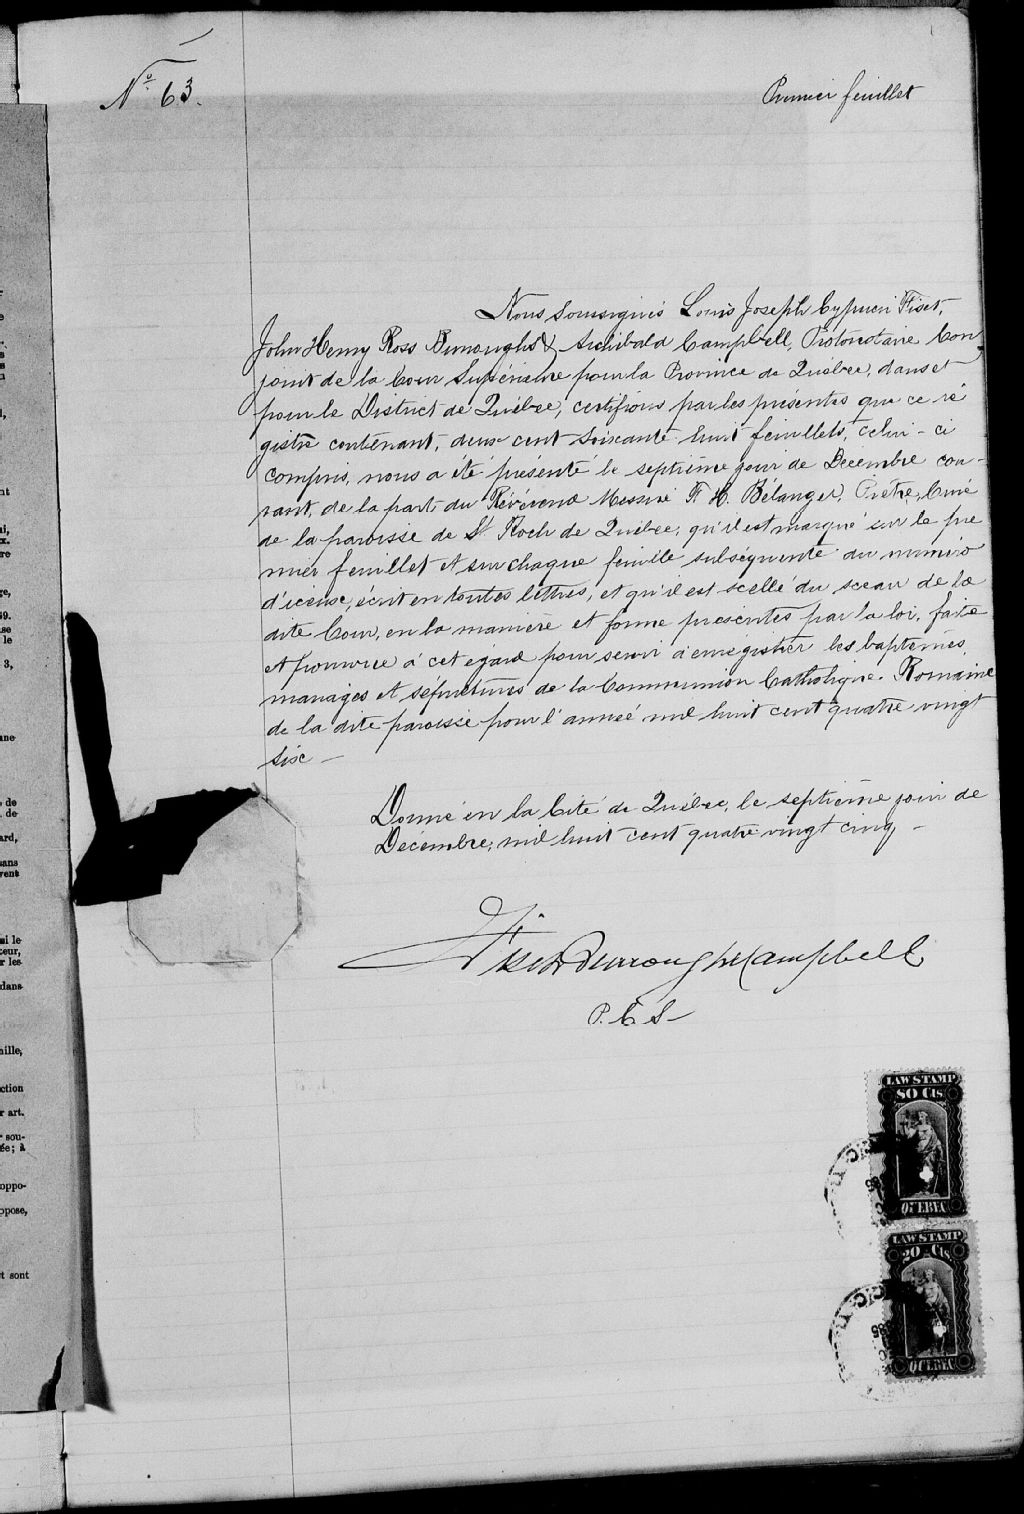 No. 63.
Premier feuillet
Nous soussignés Louis Joseph Cyprien Fiset,
John Henry Ross Burroughs & Archibald Campbell, Protonotaire Con
joint de la Cour Supérieure pour la Province de Québec, dans et
pour le District de Québec, certifions par les présentes que ce ré
gistre contenant, deux cent soixante huit feuillets, celui-ci
compris, nous a été présenté le septième jour de Décembre cou-
rant, de la part du Révérend Messire F. H. Bélanger, Prêtre, Curé
de la paroisse de St. Roch de Québec; qu'il est marqué sur le pre
mier feuillet et sur chaque feuille subséquente du numéro
d'icense, écrit en toutes lettres, et qu'il est scellé du sceau de la
dite Cour, en la manière et forme prescrites par la loi, faite
et pourvue à cet égard pour servir à enrégistrer les baptêmes,
mariages et sépultures de la Communion Catholique Romaine
de la dite paroisse pour l'année mil huit cent quatre vingt
six —
Donné en la Cité de Québec, le septième jour de
Décembre, mil huit cent quatre vingt cinq —
Fiset Burroughs Campbell
P. C. S.
LAW STAMP
80 Cts
QUEBEC
LAW STAMP
20 Cts
QUEBEC